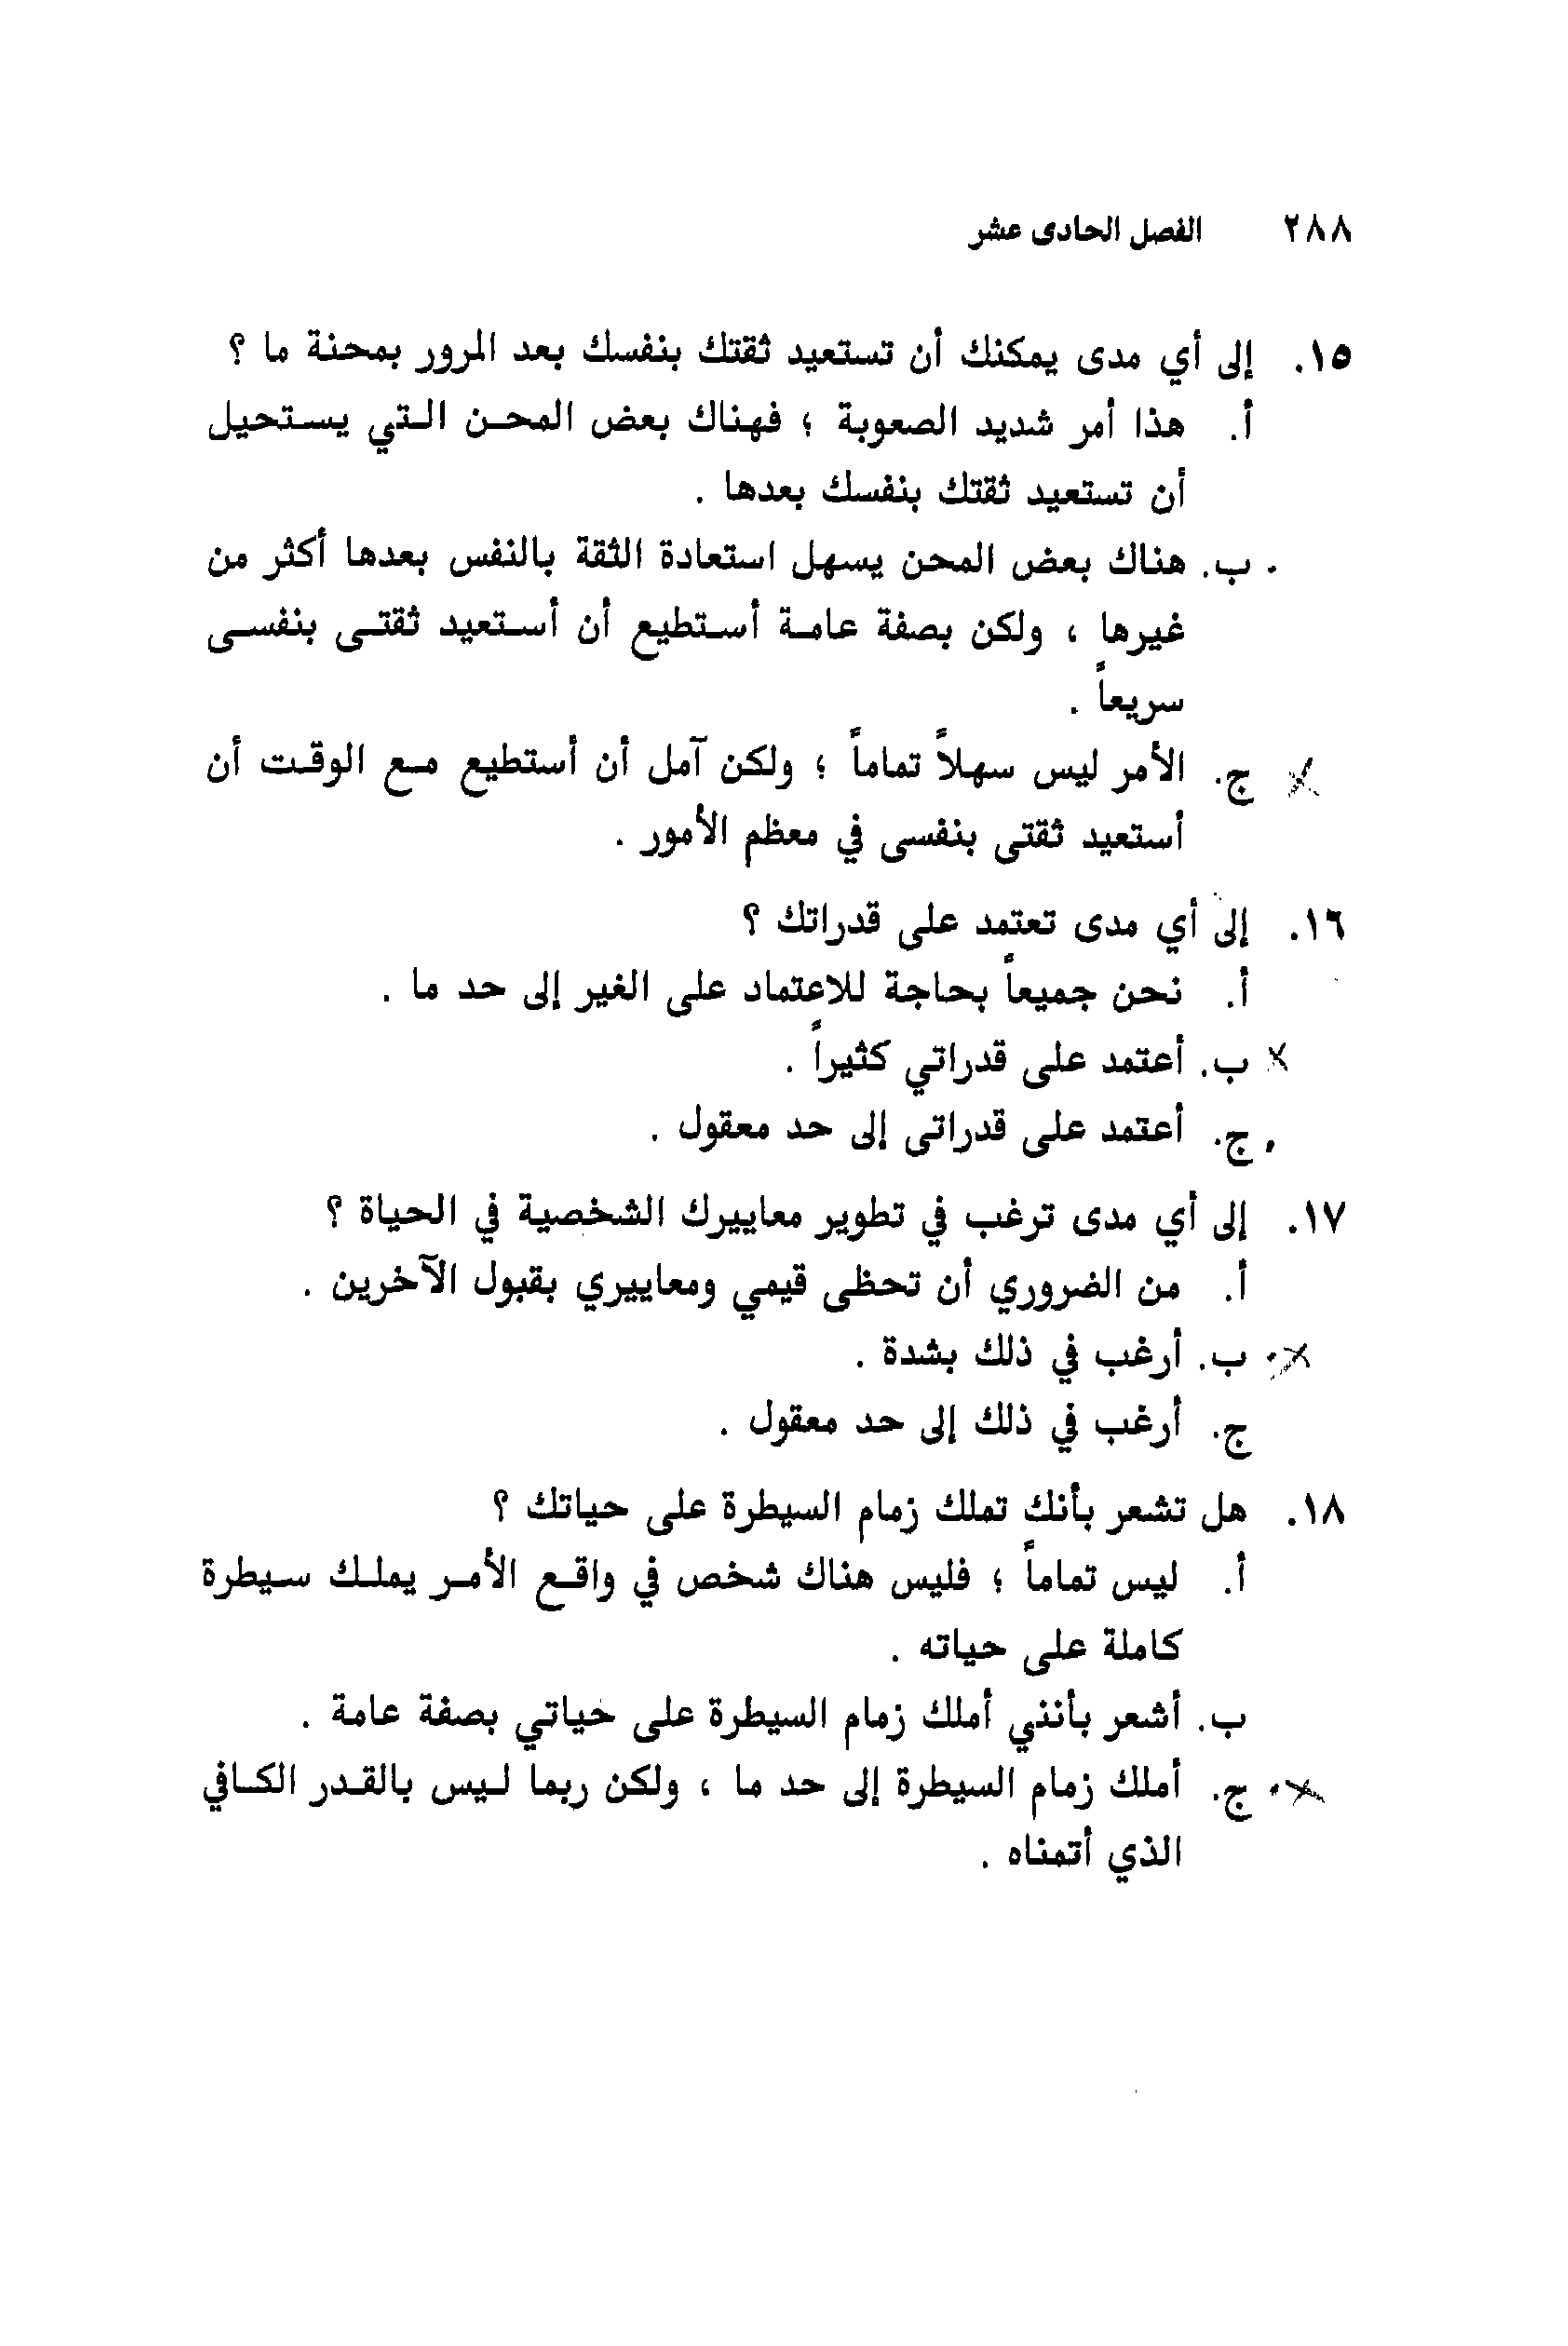 ٢٨٨ الفصل الحادى عشر
١٥. إلى أي مدى يمكنك أن تستعيد ثقتك بنفسك بعد المرور بمحنة ما ؟
أ. هذا أمر شديد الصعوبة ؛ فهناك بعض المحن التي يستحيل
أن تستعيد ثقتك بنفسك بعدها .
ب. هناك بعض المحن يسهل استعادة الثقة بالنفس بعدها أكثر من
غيرها ، ولكن بصفة عامة أستطيع أن أستعيد ثقتى بنفسى
سريعاً .
ج. الأمر ليس سهلاً تماماً ؛ ولكن آمل أن أستطيع مع الوقت أن
أستعيد ثقتى بنفسى في معظم الأمور .
١٦. إلى أي مدى تعتمد على قدراتك ؟
أ. نحن جميعاً بحاجة للاعتماد على الغير إلى حد ما .
ب. أعتمد على قدراتي كثيراً .
ج. أعتمد على قدراتى إلى حد معقول .
١٧. إلى أي مدى ترغب في تطوير معاييرك الشخصية في الحياة ؟
أ. من الضروري أن تحظى قيمي ومعاييري بقبول الآخرين .
ب. أرغب في ذلك بشدة .
ج. أرغب في ذلك إلى حد معقول .
١٨. هل تشعر بأنك تملك زمام السيطرة على حياتك ؟
أ. ليس تماماً ؛ فليس هناك شخص في واقع الأمر يملك سيطرة
كاملة على حياته .
ب. أشعر بأنني أملك زمام السيطرة على حياتي بصفة عامة .
ج. أملك زمام السيطرة إلى حد ما ، ولكن ربما ليس بالقدر الكافي
الذي أتمناه .